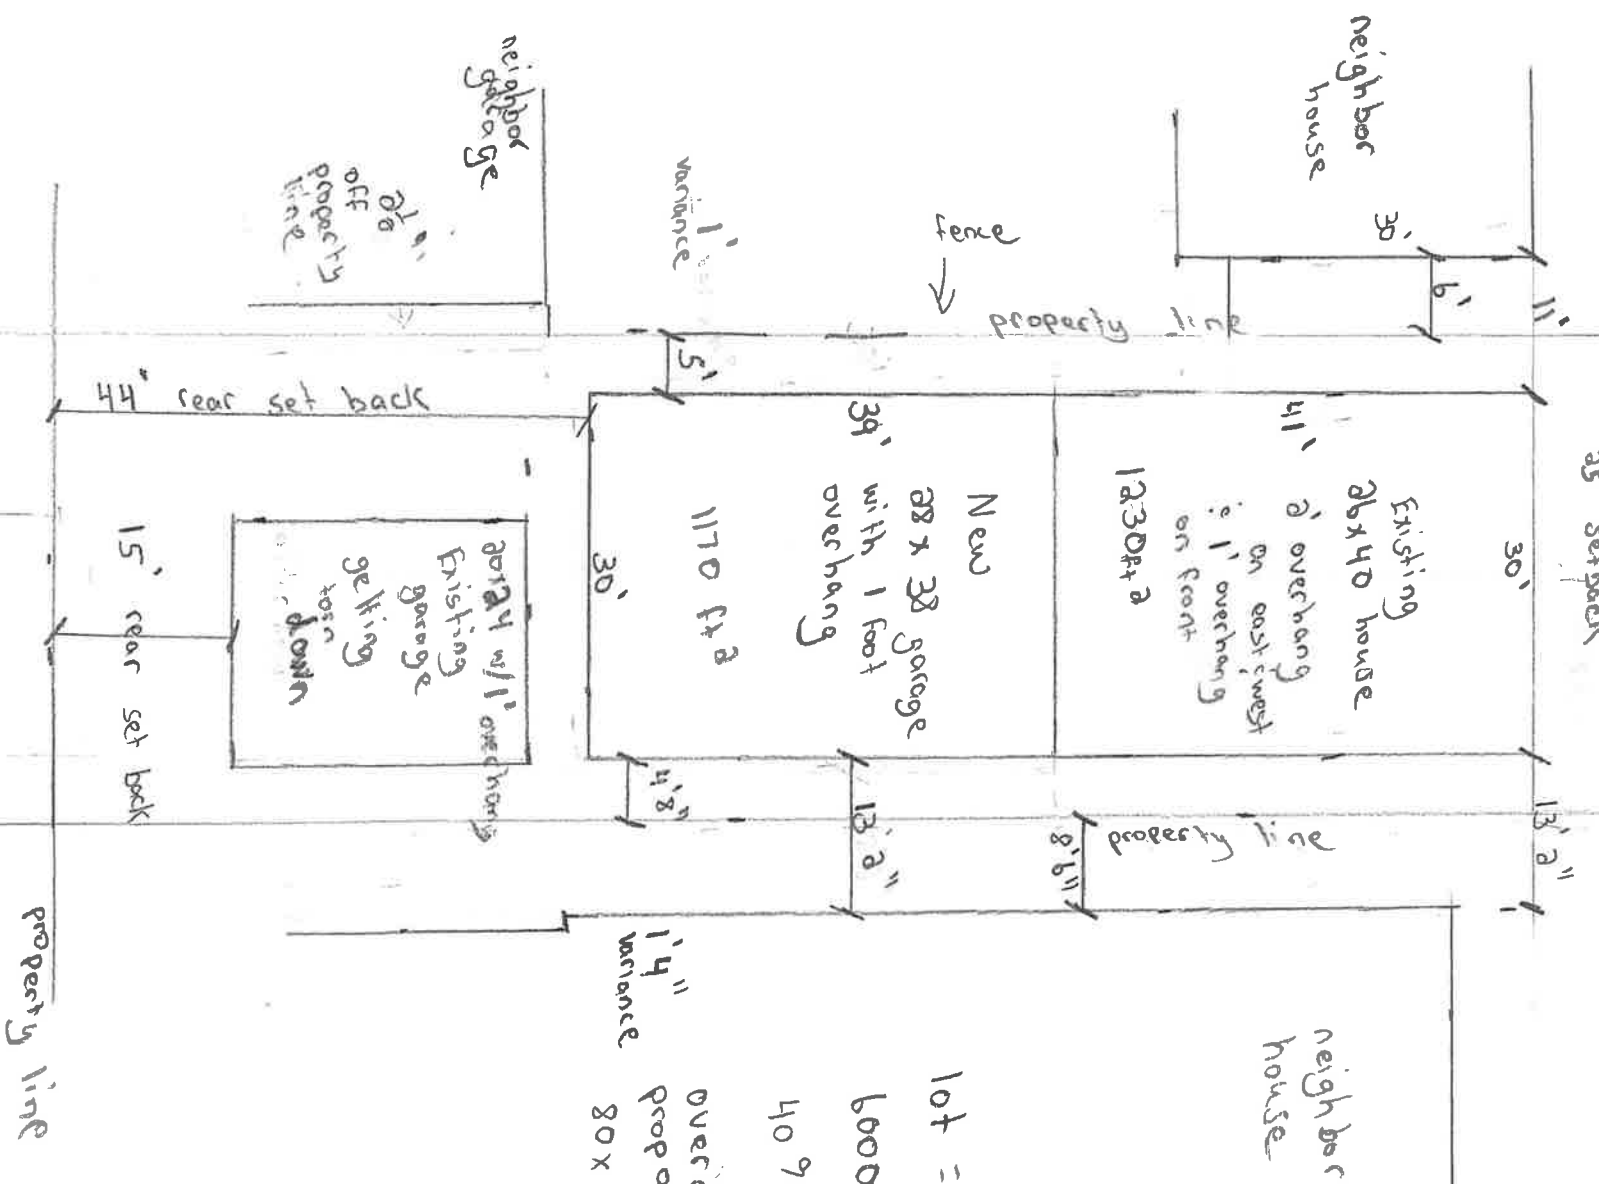 neighbor
house
30'
6'
11'
fence
property line
1'
variance
neighbor
garage
off
property
line
5'
44' rear set back
39'
41'
30'
Existing
26x40 house
2' overhang
on east & west
& 1' overhang
on front
1230ft2
New
28 x 38 garage
with 1 foot
overhang
1170 ft2
30'
20x24 w/1' overhang
Existing
garage
getting
torn
down
15' rear set back
25 setback
4'8"
13' 2"
8'6"
property line
13' 2"
1'4"
variance
property line
neighbor
house
lot =
6000
40 %
over
propo
80 x